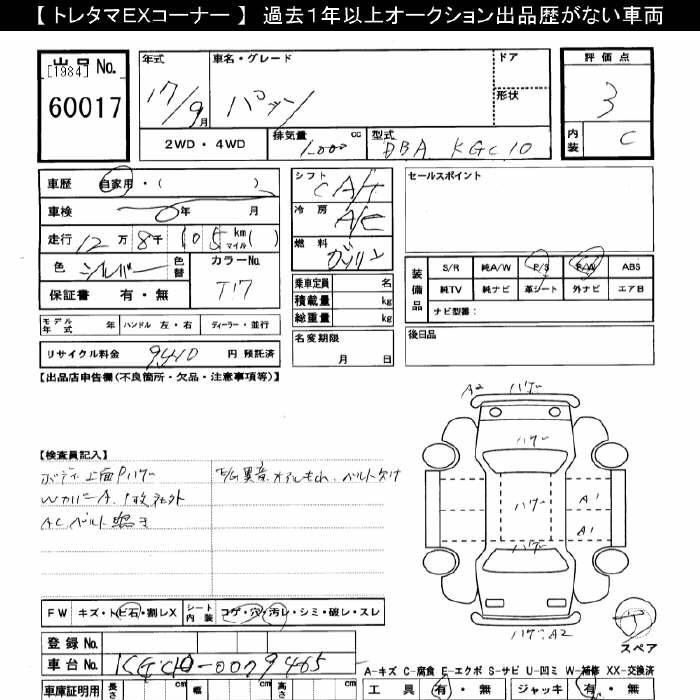 【 トレタマEXコーナー 】 過去1年以上オークション出品歴がない車両
出品 No.
[1984]
60017
年式
17/9月
車名・グレード
パッソ
ドア
形状
評価点
3
内装
C
2WD・4WD
排気量
1000 cc
型式
DBA KGC10
車歴 自家用・( )
車検 0年 月
走行 12万 8千 105 km マイル ( )
色 シルバー 色替
カラーNo.
T17
保証書 有・無
シフト
CAT
冷房
A/C
燃料
ガソリン
乗車定員 名
積載量 kg
総重量 kg
セールスポイント
装備品
S/R 純A/W P/S P/W ABS
純TV 純ナビ 革シート 外ナビ エアB
ナビ型番:
モデル年式 年 ハンドル 左・右 ディーラー・並行
リサイクル料金 9410 円 預託済
名変期限
月 日
後日品
【出品店申告欄(不良箇所・欠品・注意事項等)】
【検査員記入】
ボディ上面Pハゲ
E/G異音、オイルもれ、ベルト欠け
WカバーA、1枚社外
ACベルト
A2 ハゲ
ハゲ
ハゲ
A1
A1
ハゲ
ハゲ、A2
スペア
FW キズ・トビ石・割レX シート内装 コゲ・穴・汚レ・シミ・破レ・スレ
登録No.
車台No. KGC10-0079465
A-キズ C-腐食 E-エクボ S-サビ U-凹ミ W-補修 XX-交換済
車庫証明用 長さ cm 幅 cm 高さ cm
工具 有・無 ジャッキ 有・無